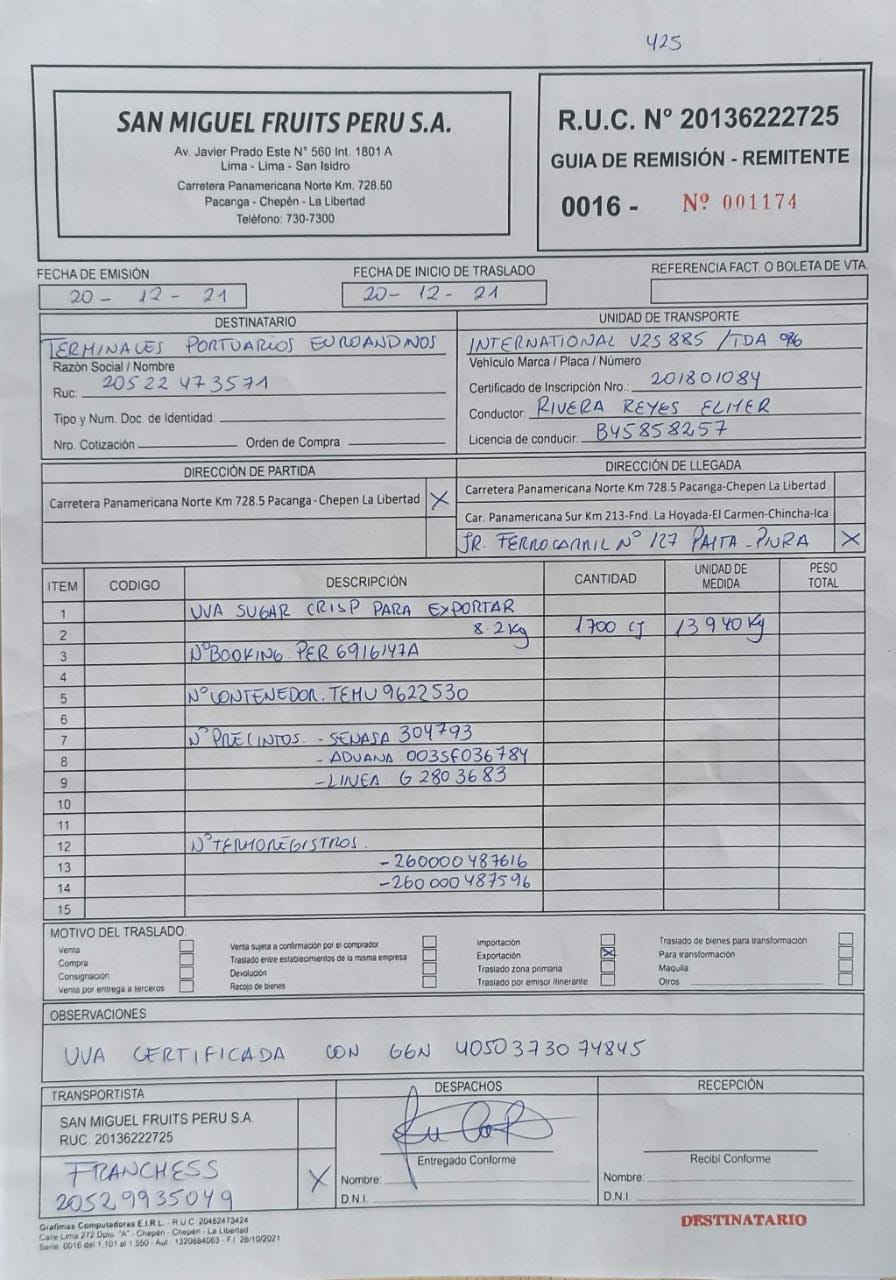 425
SAN MIGUEL FRUITS PERU S.A.
Av. Javier Prado Este N° 560 Int. 1801 A
Lima - Lima - San Isidro
Carretera Panamericana Norte Km. 728.50
Pacanga - Chepén - La Libertad
Teléfono: 730-7300
R.U.C. N° 20136222725
GUIA DE REMISIÓN - REMITENTE
0016 - Nº 001174
FECHA DE EMISIÓN
20 - 12 - 21
FECHA DE INICIO DE TRASLADO
20 - 12 - 21
REFERENCIA FACT. O BOLETA DE VTA.
DESTINATARIO
TERMINALES PORTUARIOS EUROANDINOS
Razón Social / Nombre
Ruc: 20522473571
Tipo y Num. Doc. de Identidad:
Nro. Cotización Orden de Compra
UNIDAD DE TRANSPORTE
INTERNATIONAL V2S 885 / TDA 986
Vehículo Marca / Placa / Número
Certificado de Inscripción Nro.: 201801084
Conductor: RIVERA REYES ELMER
Licencia de conducir: B45858257
DIRECCIÓN DE PARTIDA
Carretera Panamericana Norte Km 728.5 Pacanga-Chepen La Libertad X
DIRECCIÓN DE LLEGADA
Carretera Panamericana Norte Km 728.5 Pacanga-Chepen La Libertad
Car. Panamericana Sur Km 213-Fnd. La Hoyada-El Carmen-Chincha-Ica
JR. FERROCARRIL Nº 127 PAITA - PIURA X
ITEM CODIGO DESCRIPCIÓN CANTIDAD UNIDAD DE MEDIDA PESO TOTAL
1 UVA SUGAR CRISP PARA EXPORTAR
2 8.2Kg 1700 CJ 13940Kg
3 NºBOOKING: PER 6916147A
4
5 NºCONTENEDOR: TEMU 9622530
6
7 Nº PRECINTOS. - SENASA 304793
8 - ADUANA 003SF036784
9 - LINEA G 2803683
10
11
12 NºTERMOREGISTROS.
13 - 260000487616
14 - 260000487596
15
MOTIVO DEL TRASLADO:
Venta
Compra
Consignación
Venta por entrega a terceros
Venta sujeta a confirmación por el comprador
Traslado entre establecimientos de la misma empresa
Devolución
Recojo de bienes
Importación
Exportación X
Traslado zona primaria
Traslado por emisor itinerante
Traslado de bienes para transformación
Para transformación
Maquila
Otros
OBSERVACIONES
UVA CERTIFICADA CON GGN 4050373074845
TRANSPORTISTA
SAN MIGUEL FRUITS PERU S.A.
RUC. 20136222725
FRANCHESS
20529935049 X
DESPACHOS
Entregado Conforme
Nombre:
D.N.I.
RECEPCIÓN
Recibí Conforme
Nombre:
D.N.I.
Grafimas Computadoras E.I.R.L. - R.U.C 20482473424
Calle Lima 272 Dpto. "A" - Chepén - Chepén - La Libertad
Serie: 0016 del 1,101 al 1,550 - Aut.: 1320884063 - F.I. 26/10/2021
DESTINATARIO